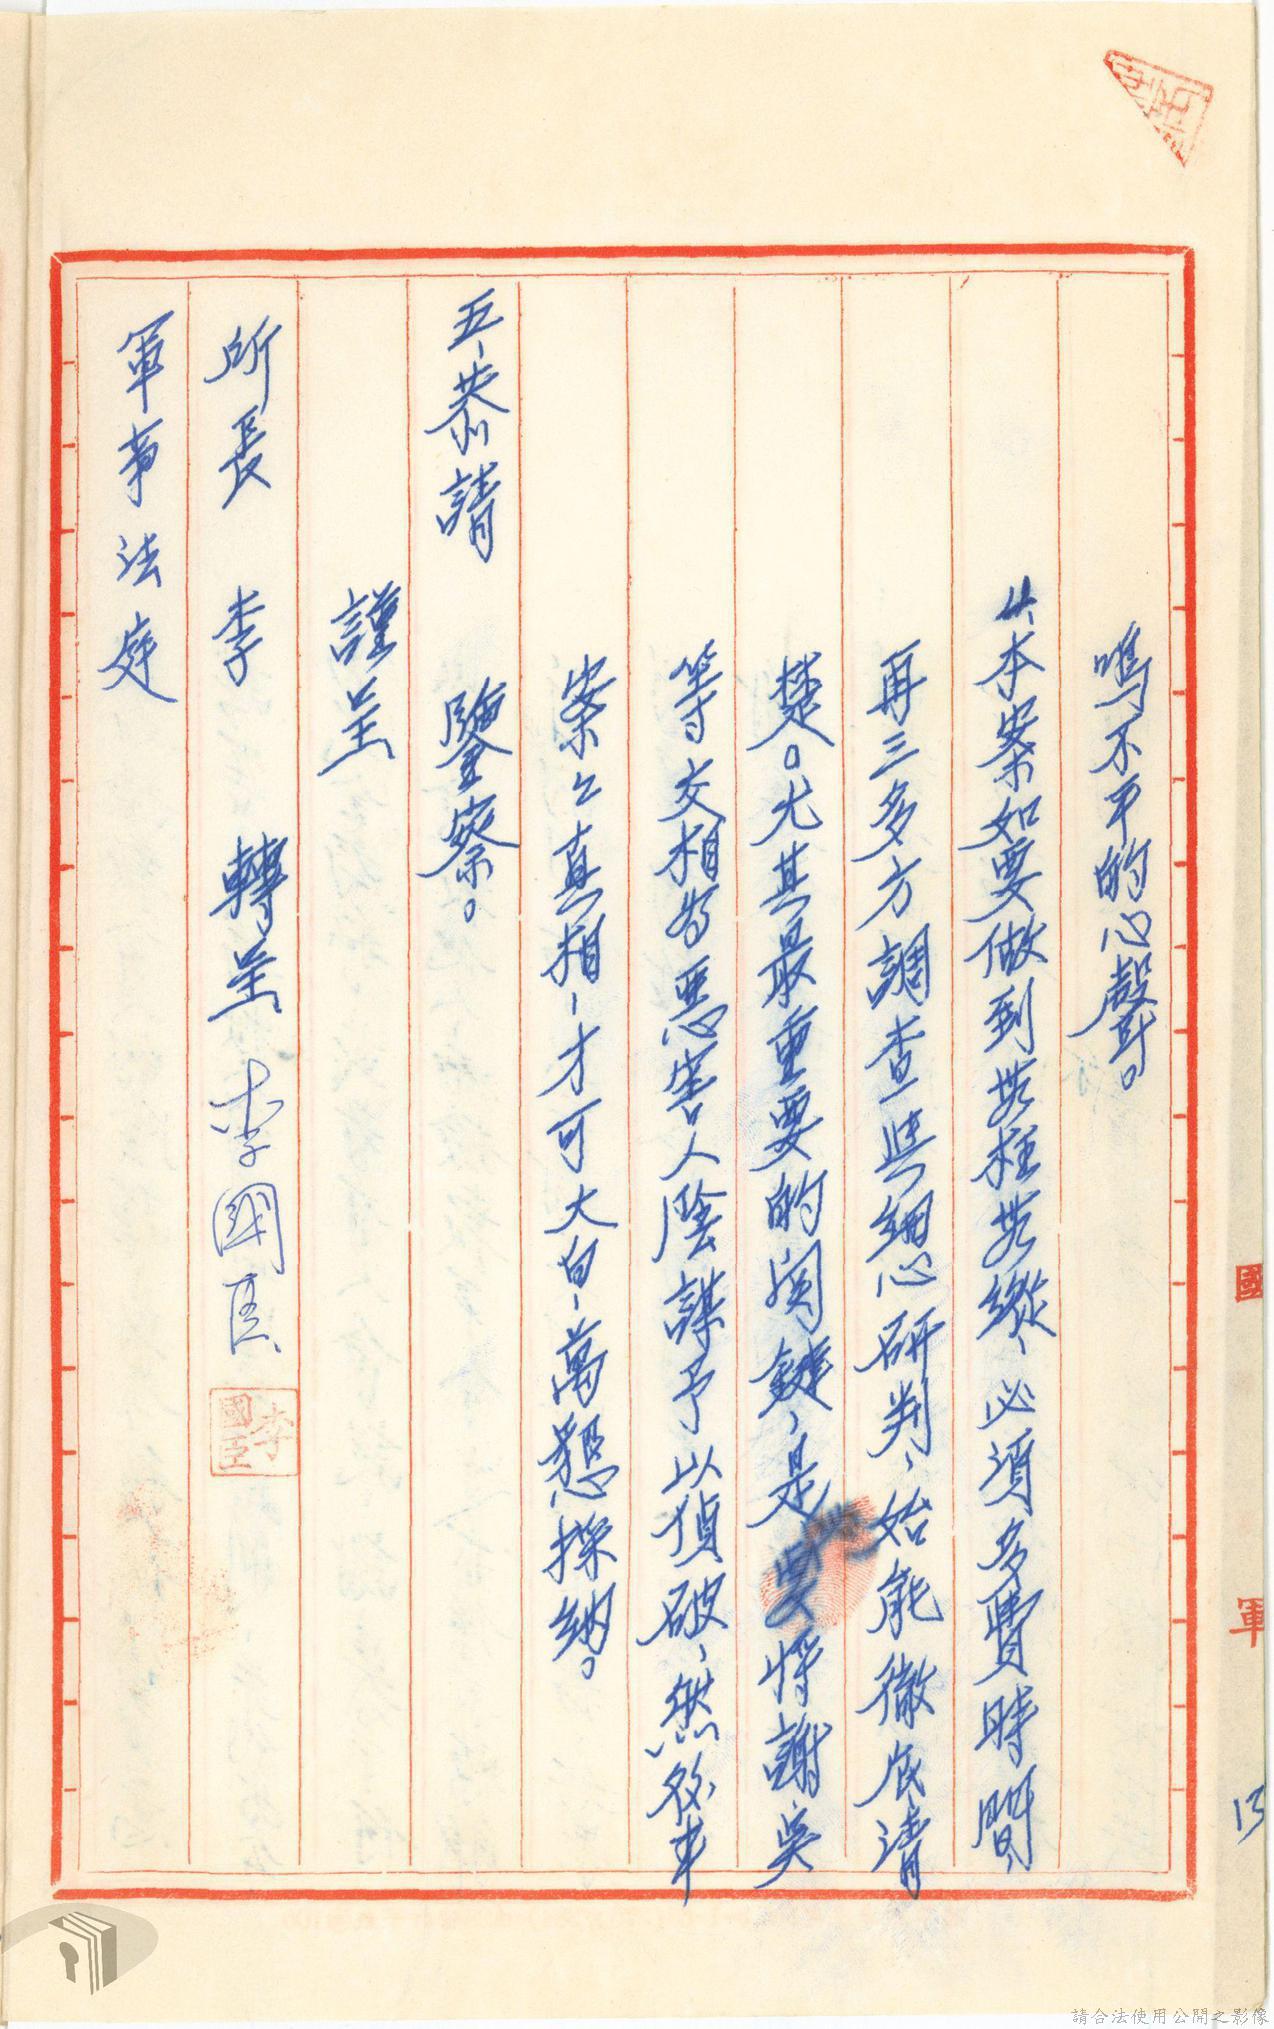 鳴不平的心聲。
4、本案如要做到無枉無縱、必須多費時間
再三多方調查與細心研判、始能徹底清
楚。尤其最重要的関鍵、是要將謝、吳
等交相為惡害人陰謀予以偵破、然後本
案之真相、才可大白、萬懇採納。
五、恭請 鑒察。
謹呈
所長 李 轉呈 李國臣
李國臣
軍事法庭
國 軍
13
請合法使用公開之影像